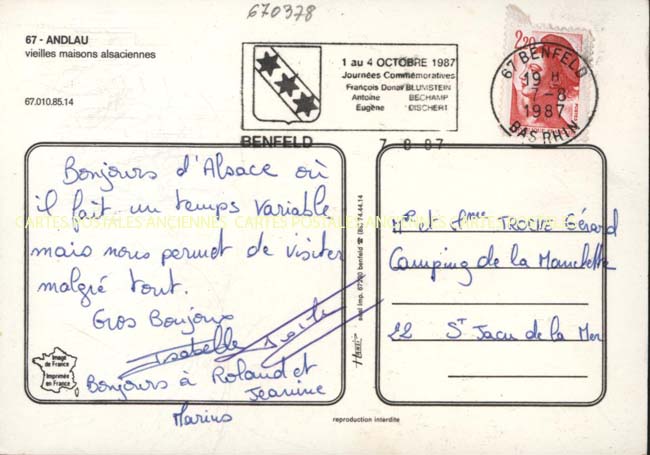 670378
67 - ANDLAU
vieilles maisons alsaciennes
67.010.85.14
1 au 4 OCTOBRE 1987
Journées Commémoratives
François Donat BLUMSTEIN
Antoine BECHAMP
Eugène DISCHERT
BENFELD
7-8-87
2,20
67 BENFELD
19 H
7-8
1987
BAS RHIN
Bonjours d'Alsace où
il fait un temps variable
mais nous permet de visiter
malgré tout.
Gros Bonjours
Isabelle
Bonjours à Roland et
Jeanine
Marius
Image
de France
Imprimée
en France
reproduction interdite
sost imp. 67230 benfeld ☎ (88) 74.44.14
Mr et Mme TROCHE Gérard
Camping de la Manchette
22 St Jacu de la Mer
CARTES POSTALES ANCIENNES CARTES POSTALES ANCIENNES CARTES POSTALES ANCIENNES